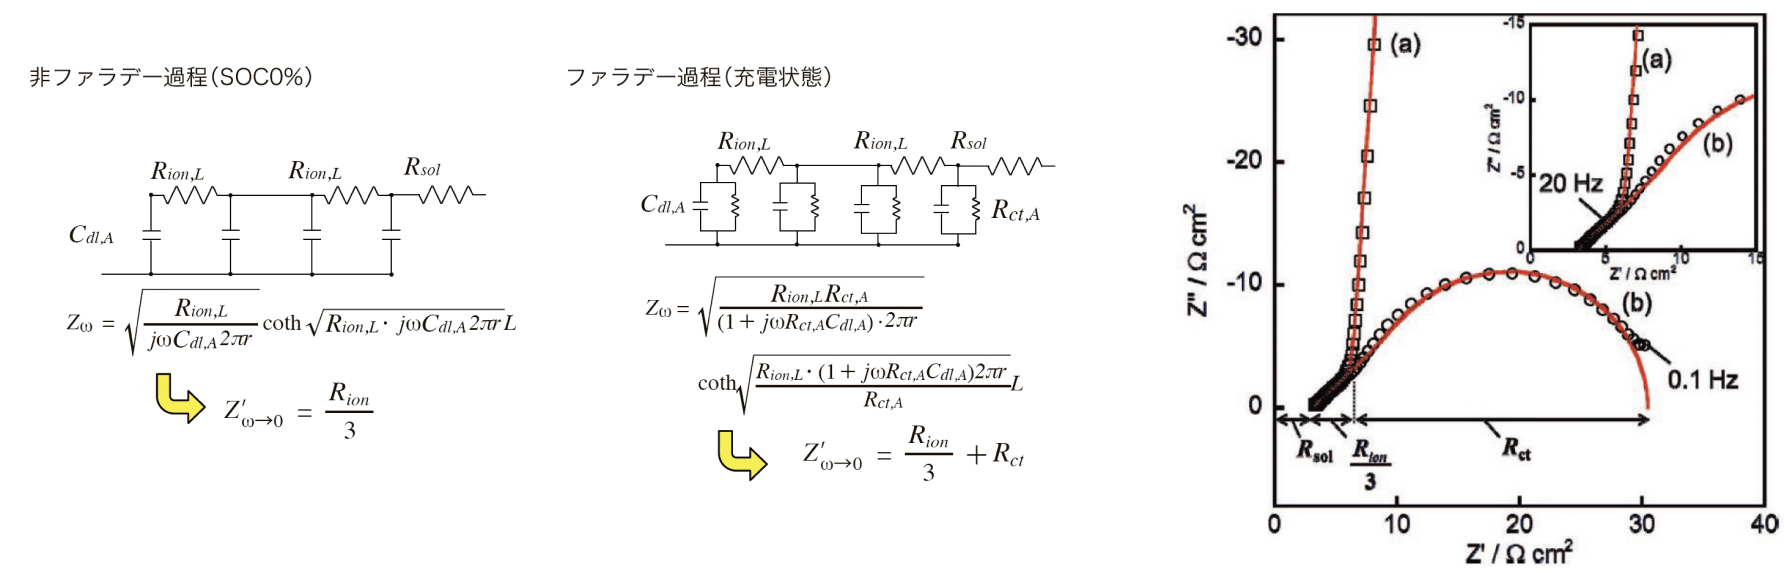 非ファラデー過程(SOC0%)
R_{ion,L} R_{ion,L} R_{sol}
C_{dl,A}
Z_ω = √(R_{ion,L} / jωC_{dl,A}2πr) coth √(R_{ion,L}· jωC_{dl,A}2πr) L
Z'_{ω→0} = R_{ion} / 3
ファラデー過程(充電状態)
R_{ion,L} R_{ion,L} R_{sol}
C_{dl,A} R_{ct,A}
Z_ω = √(R_{ion,L}R_{ct,A} / (1 + jωR_{ct,A}C_{dl,A})·2πr)
coth √(R_{ion,L}· (1 + jωR_{ct,A}C_{dl,A})2πr / R_{ct,A}) L
Z'_{ω→0} = R_{ion} / 3 + R_{ct}
Z" / Ω cm²
-30
-20
-10
0
(a)
(b)
0.1 Hz
R_{sol} R_{ion} / 3 R_{ct}
0 10 20 30 40
Z' / Ω cm²
Z" / Ω cm²
-15
-10
-5
0
(a)
(b)
20 Hz
0 5 10 15
Z' / Ω cm²